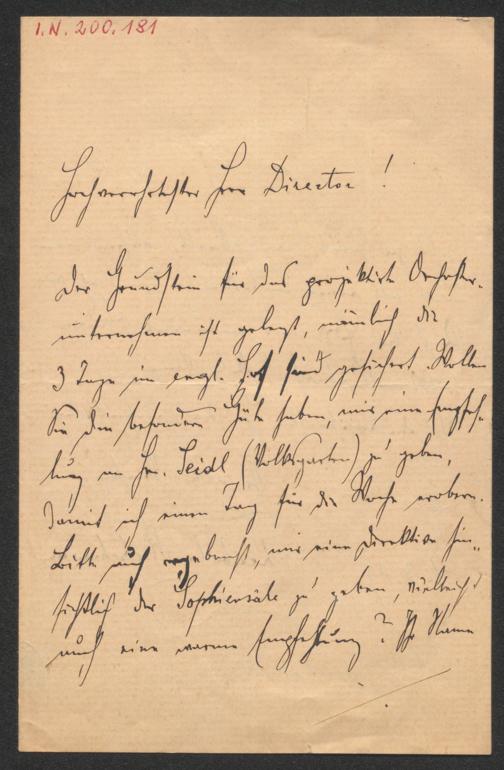 I.N. 200.181
Hochverehrtester Herr Director!
Der Grundstein für das projektirte Orchester-
unternehmen ist gelegt, nämlich die
3 Tage im engl. Hof sind gesichert. Wollen
Sie die besondere Güte haben, mir eine Empfeh-
lung an Hr. Seidl (Volksgarten) zu geben,
damit ich einen Tag für die Woche erobere.
Bitte auch ergebenst, mir eine Direktive hin-
sichtlich der Sophiensäle zu geben, vielleicht
auch eine warme Empfehlung? Ihr Name